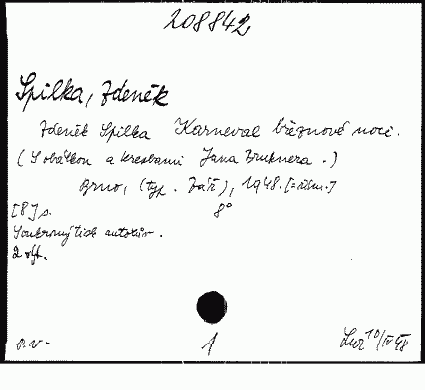 208842
Spilka, Zdeněk
Zdeněk Spilka Karneval březnové noci.
(S obálkou a kresbami Jana Truknera.)
Brno, (typ. Září), 1948. [=řím.]
[8] s. 8°
Soukromý tisk autorův.
2 Kčs.
1 10/IV 48